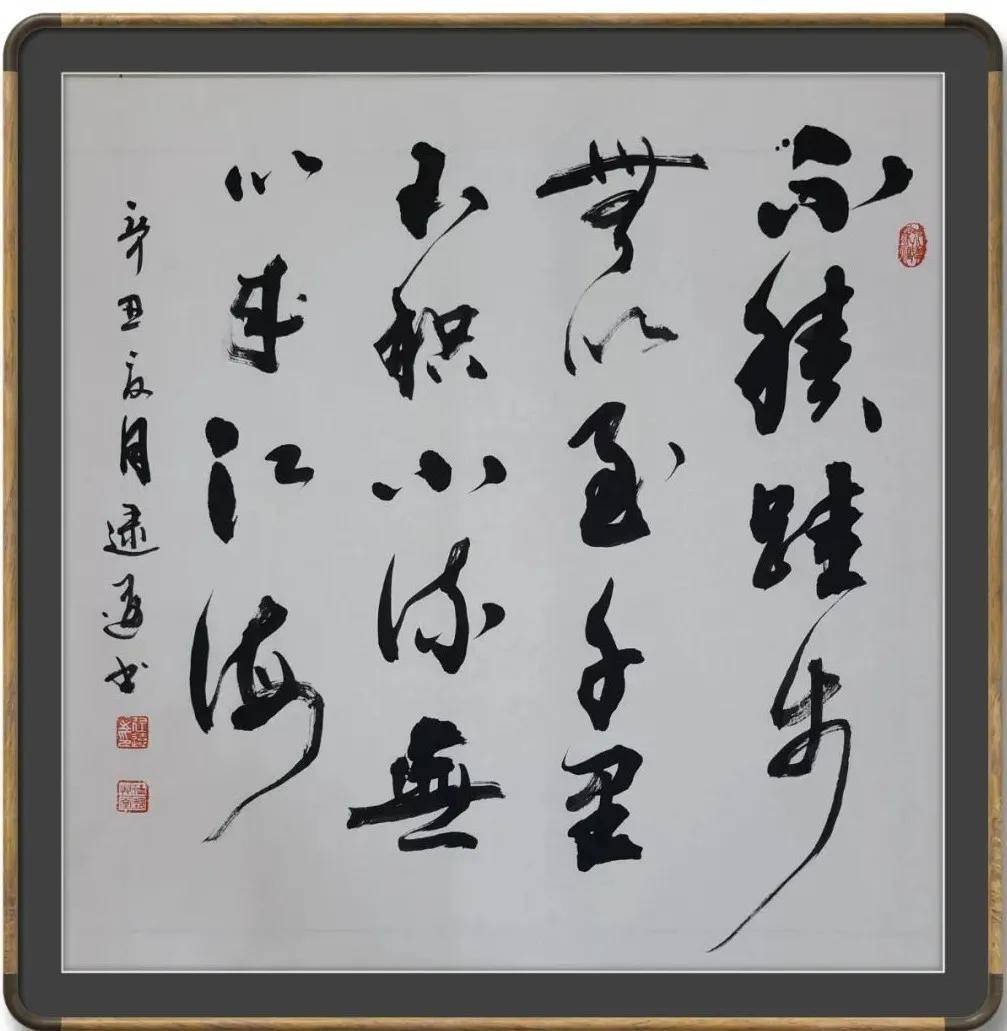 不積跬步
無以至千里
不积小流無
以成江海
辛丑夏月书